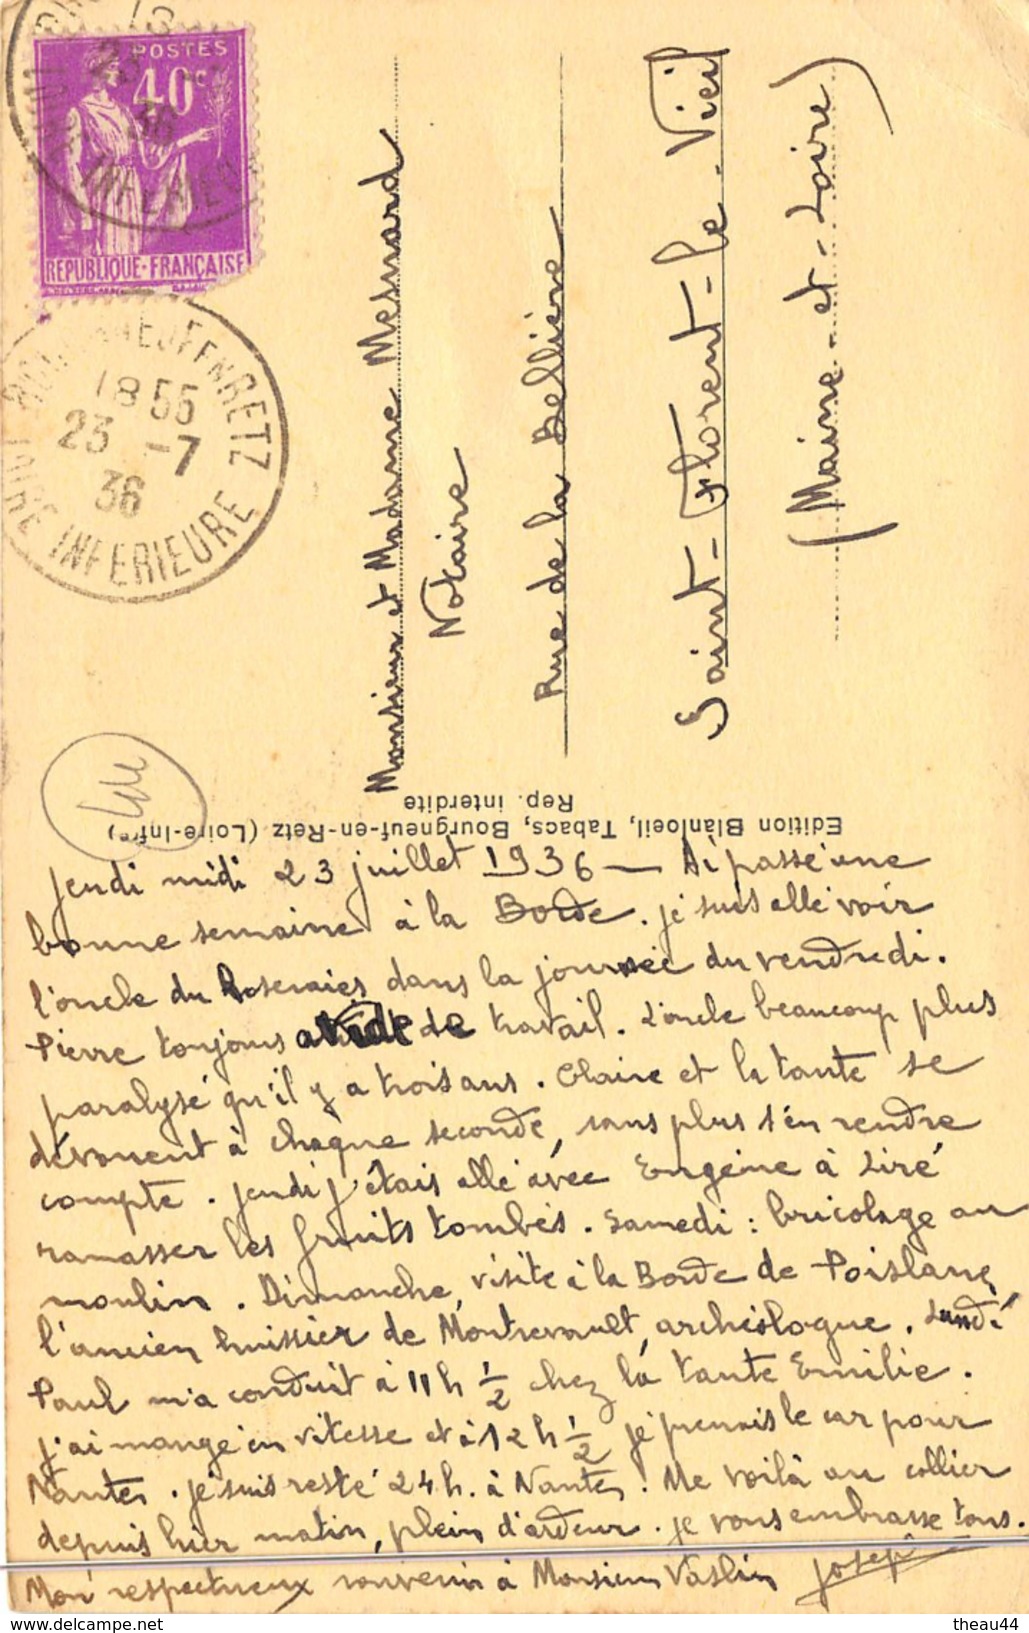 POSTES
40c
REPUBLIQUE-FRANÇAISE
LOIRE INFERIEURE
18 55
23 -7
36
LOIRE INFERIEURE
Monsieur et Madame Mesnard
Notaire
Rue de la Bellière
Saint-Florent-le-Vieil
(Maine-et-Loire)
Edition Blanloeil, Tabacs, Bourgneuf-en-Retz (Loire-Infre)
Rep. interdite
Jeudi midi 23 juillet 1936 — Ai passé une
bonne semaine à la Borde. je suis allé voir
l'oncle du dans la journée du vendredi.
Pierre toujours avide de travail. L'oncle beaucoup plus
paralysé qu'il y a trois ans. Claire et la tante se
dévouent à chaque seconde, sans plus s'en rendre
compte. jeudi j'étais allé avec Eugène à Liré
ramasser les fruits tombés. Samedi : bricolage au
moulin. Dimanche, visite à la Borde de Poislane,
l'ancien huissier de Montrevault, archéologue. Lundi
Paul m'a conduit à 11 h ½ chez la tante Emilie.
j'ai mangé en vitesse et à 12 h ½ je prenais le car pour
Nantes. je suis resté 24 h. à Nantes! Me voilà au collier
depuis hier matin, plein d'ardeur. je vous embrasse tous.
Mon respectueux souvenir à Monsieur Vaslin Joseph
theau44